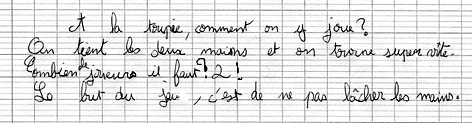 A la toupie, comment on y joue?
On tient les deux mains et on tourne super vite.
Combien de joueurs il faut? 2!
Le but du jeu, c'est de ne pas lâcher les mains.